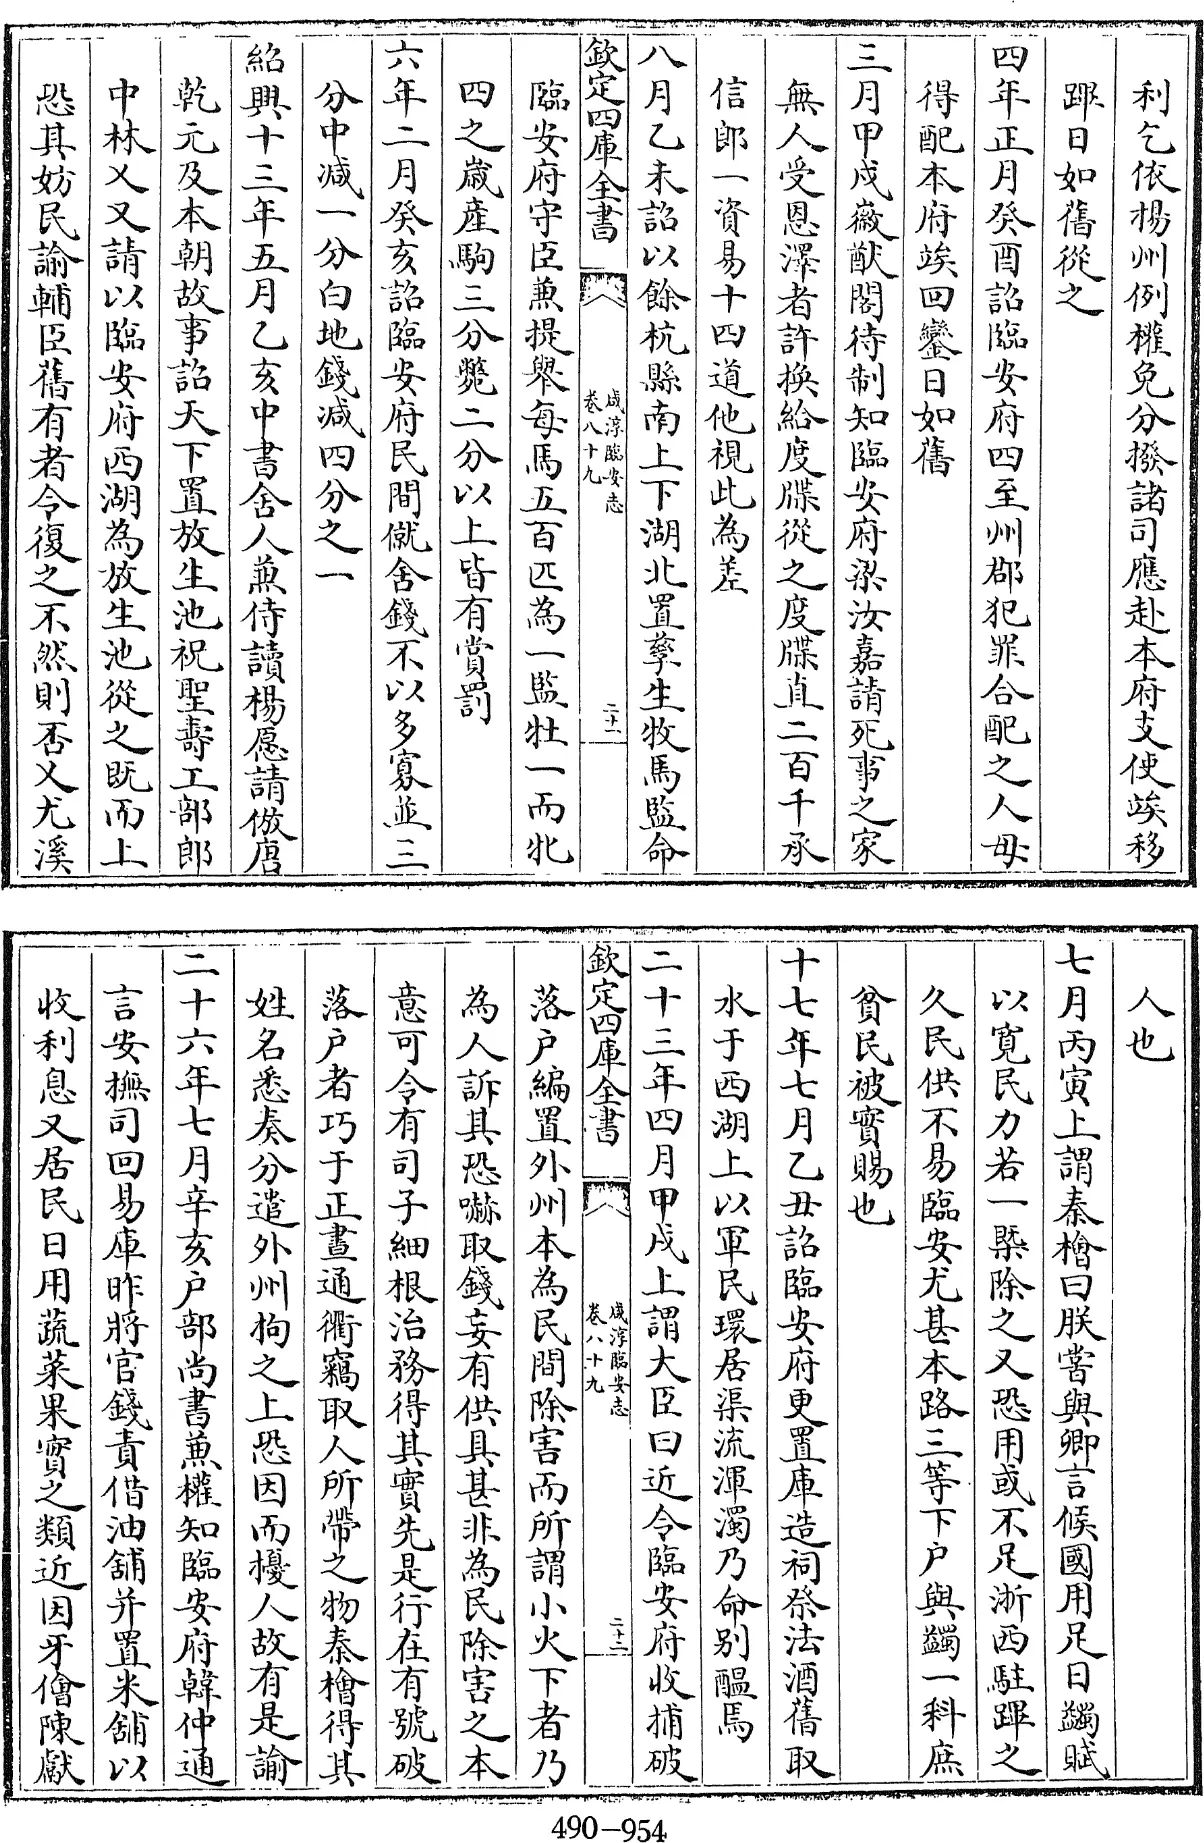 利乞依揚州例權免分撥諸司應赴本府支使竢移
蹕日如舊從之
四年正月癸酉詔臨安府四至州郡犯罪合配之人毋
得配本府竢回鑾日如舊
三月甲戍徽猷閣待制知臨安府梁汝嘉請死事之家
無人受恩澤者許換給度牒從之度牒直二百千承
信郎一資易十四道他視此為差
八月乙未詔以餘杭縣南上下湖北置孳生牧馬監命
欽定四庫全書
咸淳臨安志
卷八十九
二十一
臨安府守臣兼提舉每馬五百匹為一監牡一而牝
四之歲產駒三分斃二分以上皆有賞罰
六年二月癸亥詔臨安府民間僦舍錢不以多寡並三
分中減一分白地錢減四分之一
紹興十三年五月乙亥中書舍人兼侍讀楊愿請倣唐
乾元及本朝故事詔天下置放生池祝聖壽工部郎
中林乂又請以臨安府西湖為放生池從之既而上
恐其妨民諭輔臣舊有者令復之不然則否乂尤溪
人也
七月丙寅上謂秦檜曰朕嘗與卿言候國用足日蠲賦
以寬民力若一槩除之又恐用或不足浙西駐蹕之
久民供不易臨安尤甚本路三等下户與蠲一料庶
貧民被實賜也
十七年七月乙丑詔臨安府更置庫造祠祭法酒舊取
水于西湖上以軍民環居渠流渾濁乃命别醖焉
二十三年四月甲戍上謂大臣曰近令臨安府收捕破
欽定四庫全書
咸淳臨安志
卷八十九
二十二
落户編置外州本為民間除害而所謂小火下者乃
為人訴其恐嚇取錢妄有供具甚非為民除害之本
意可令有司子細根治務得其實先是行在有號破
落户者巧于正晝通衢竊取人所帶之物秦檜得其
姓名悉奏分遣外州拘之上恐因而擾人故有是諭
二十六年七月辛亥户部尚書兼權知臨安府韓仲通
言安撫司回易庫昨將官錢責借油舖并置米舖以
收利息又居民日用蔬菜果實之類近因牙儈陳獻
490-954